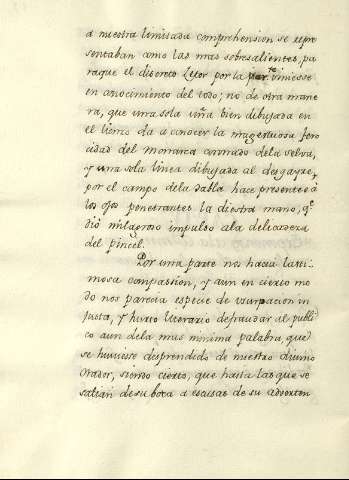 a nuestra limitada comprehension se repre
sentaban como las mas sobresalientes, pa
raque el discreto Letor por la parte viniesse
en conocimiento del todo; no de otra mane
ra, que una sola uña bien dibujada en
el lienso da a conocer la magestuosa fero
cidad del monarca coronado dela selva,
y una sola linea dibujada al desgayre,
por el campo dela tabla hace presente à
los ojos penetrantes la diestra mano, qe
dió milagroso impulso ala delicadeza
del pincel.
Por una parte nos hacia lasti-
mosa compassion, y aun en cierto mo
do nos parecia especie de usurpacion in
justa, y hurto literario defraudar al publi
co aun dela mas minima palabra, que
se huviesse desprendido de nuestro divino
Orador, siendo cierto, que hasta las que se
salian de su boca a escusas de su adverten